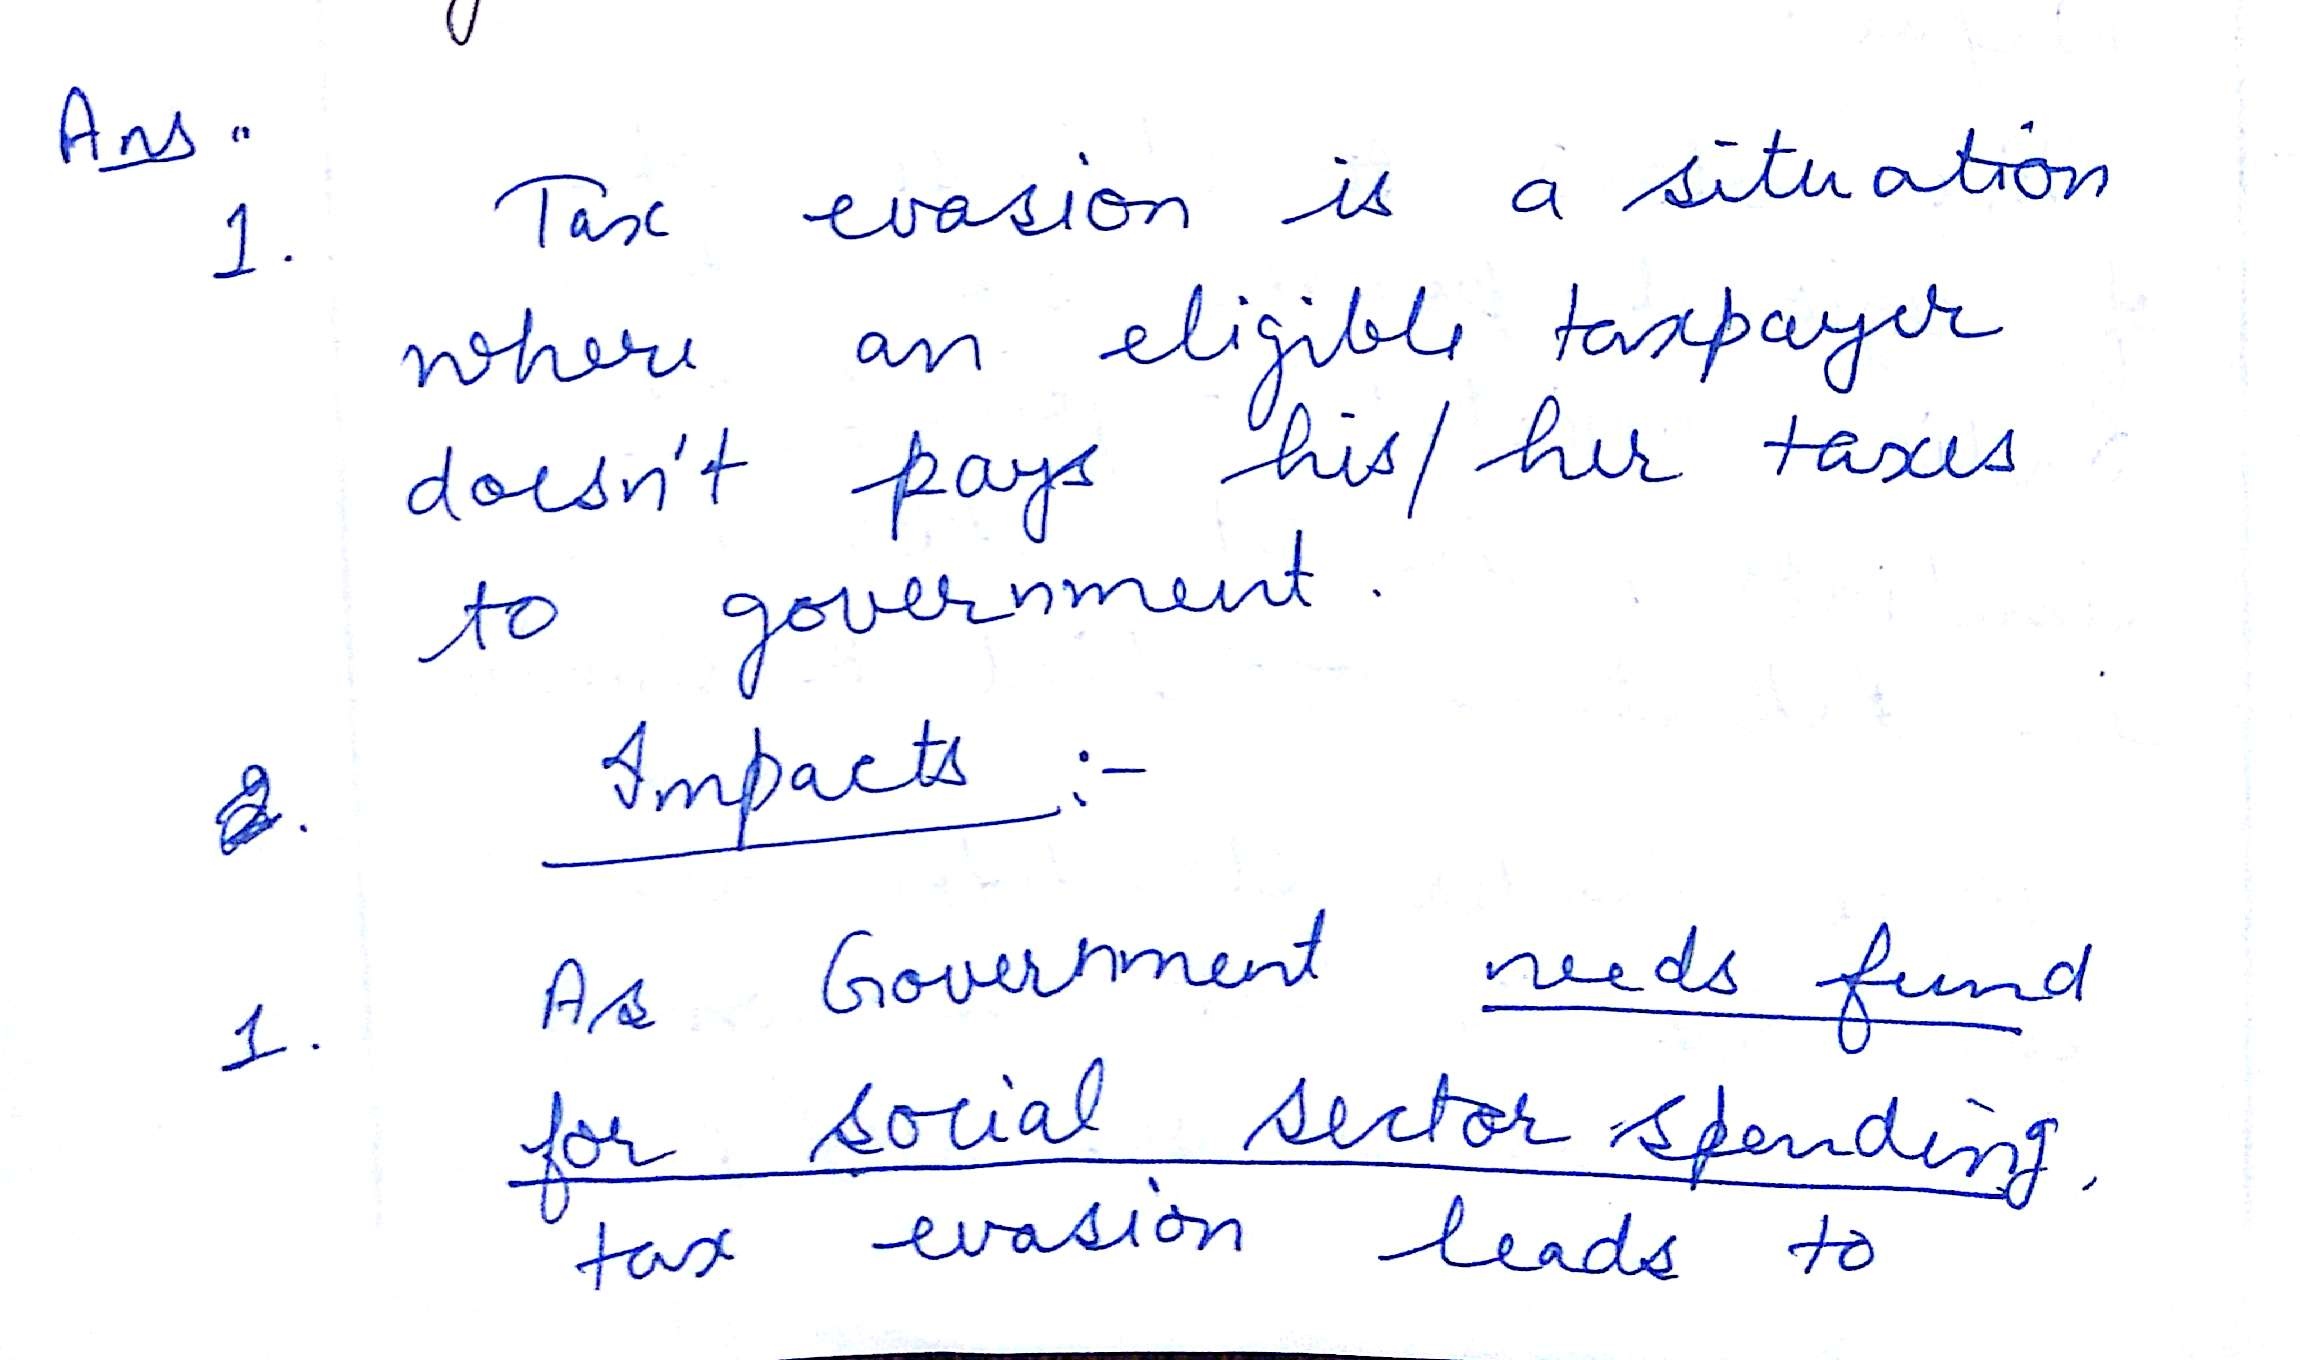 Ans "
1. Tax evasion is a situation
where an eligible taxpayer
doesn't pays his/her taxes
to government.
2. Impacts :-
1. As Government needs fund
for social sector spending,
tax evasion leads to